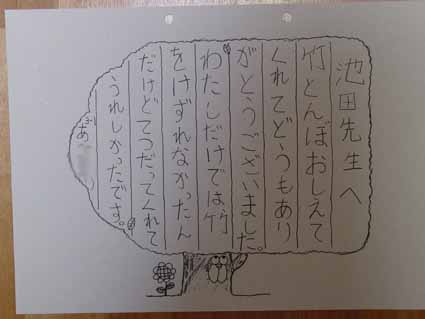 池田先生へ
竹とんぼおしえて
くれてどうもあり
がとうございました。
わたしだけでは、竹
をけずれなかったん
だけどてつだってくれて
うれしかったです。
あ